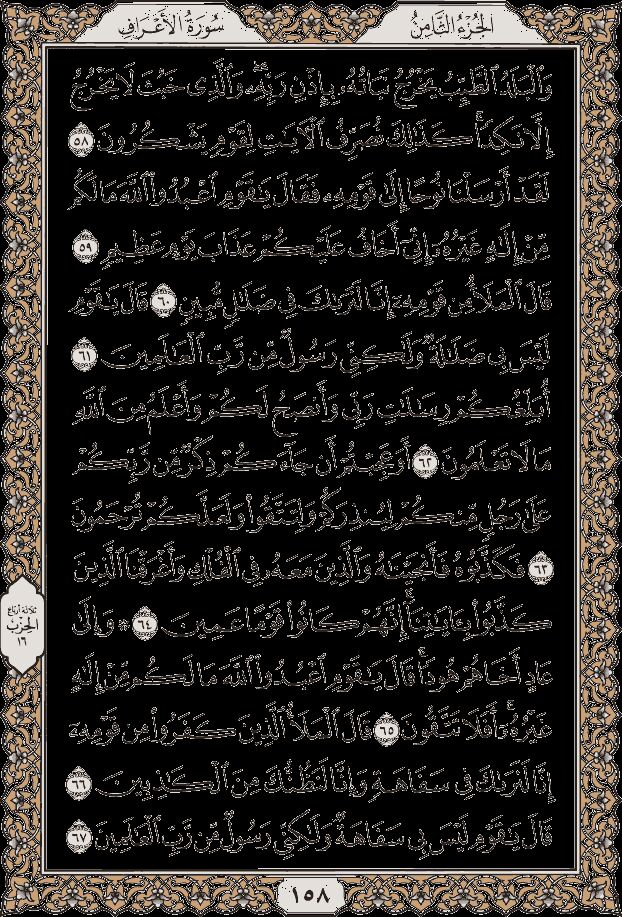 الجُزْءُ الثَّامِنُ
سُورَةُ الأَعْرَافِ
وَٱلْبَلَدُ ٱلطَّيِّبُ يَخْرُجُ نَبَاتُهُۥ بِإِذْنِ رَبِّهِۦۖ وَٱلَّذِى خَبُثَ لَا يَخْرُجُ
إِلَّا نَكِدٗاۚ كَذَٰلِكَ نُصَرِّفُ ٱلْأٓيَٰتِ لِقَوْمٖ يَشْكُرُونَ ٥٨
لَقَدْ أَرْسَلْنَا نُوحًا إِلَىٰ قَوْمِهِۦ فَقَالَ يَٰقَوْمِ ٱعْبُدُوا۟ ٱللَّهَ مَا لَكُم
مِّنْ إِلَٰهٍ غَيْرُهُۥٓ إِنِّىٓ أَخَافُ عَلَيْكُمْ عَذَابَ يَوْمٍ عَظِيمٖ ٥٩
قَالَ ٱلْمَلَأُ مِن قَوْمِهِۦٓ إِنَّا لَنَرَىٰكَ فِى ضَلَٰلٖ مُّبِينٖ ٦٠ قَالَ يَٰقَوْمِ
لَيْسَ بِى ضَلَٰلَةٞ وَلَٰكِنِّى رَسُولٞ مِّن رَّبِّ ٱلْعَٰلَمِينَ ٦١
أُبَلِّغُكُمْ رِسَٰلَٰتِ رَبِّى وَأَنصَحُ لَكُمْ وَأَعْلَمُ مِنَ ٱللَّهِ
مَا لَا تَعْلَمُونَ ٦٢ أَوَعَجِبْتُمْ أَن جَآءَكُمْ ذِكْرٞ مِّن رَّبِّكُمْ
عَلَىٰ رَجُلٖ مِّنكُمْ لِيُنذِرَكُمْ وَلِتَتَّقُوا۟ وَلَعَلَّكُمْ تُرْحَمُونَ
٦٣ فَكَذَّبُوهُ فَأَنجَيْنَٰهُ وَٱلَّذِينَ مَعَهُۥ فِى ٱلْفُلْكِ وَأَغْرَقْنَا ٱلَّذِينَ
كَذَّبُوا۟ بِـَٔايَٰتِنَآۚ إِنَّهُمْ كَانُوا۟ قَوْمًا عَمِينَ ٦٤ ۞ وَإِلَىٰ
عَادٍ أَخَاهُمْ هُودٗاۚ قَالَ يَٰقَوْمِ ٱعْبُدُوا۟ ٱللَّهَ مَا لَكُم مِّنْ إِلَٰهٍ
غَيْرُهُۥٓۚ أَفَلَا تَتَّقُونَ ٦٥ قَالَ ٱلْمَلَأُ ٱلَّذِينَ كَفَرُوا۟ مِن قَوْمِهِۦٓ
إِنَّا لَنَرَىٰكَ فِى سَفَاهَةٖ وَإِنَّا لَنَظُنُّكَ مِنَ ٱلْكَٰذِبِينَ ٦٦
قَالَ يَٰقَوْمِ لَيْسَ بِى سَفَاهَةٞ وَلَٰكِنِّى رَسُولٞ مِّن رَّبِّ ٱلْعَٰلَمِينَ ٦٧
ثلاثة أرباع
الحِزْبُ
١٦
١٥٨